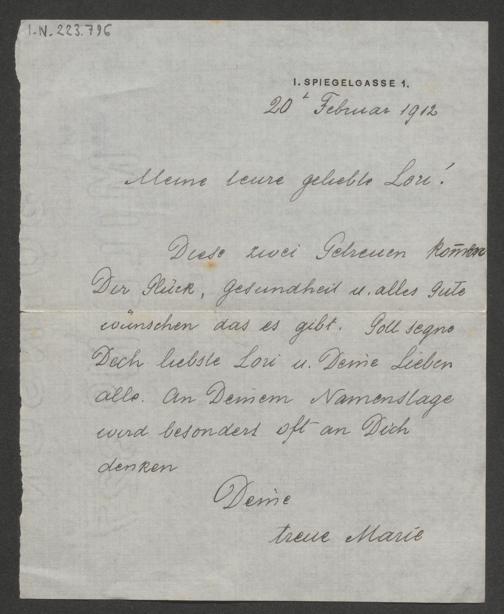 I.N. 223.796
I. SPIEGELGASSE 1.
20t Februar 1912
Meine teure geliebte Lori!
Diese zwei Getreuen kom̄en
Dir Glück, Gesundheit u. alles Gute
wünschen das es gibt. Gott segne
Dich liebste Lori u. Deine Lieben
alle. An Deinem Namenstage
wird besonders oft an Dich
denken
Deine
treue Marie